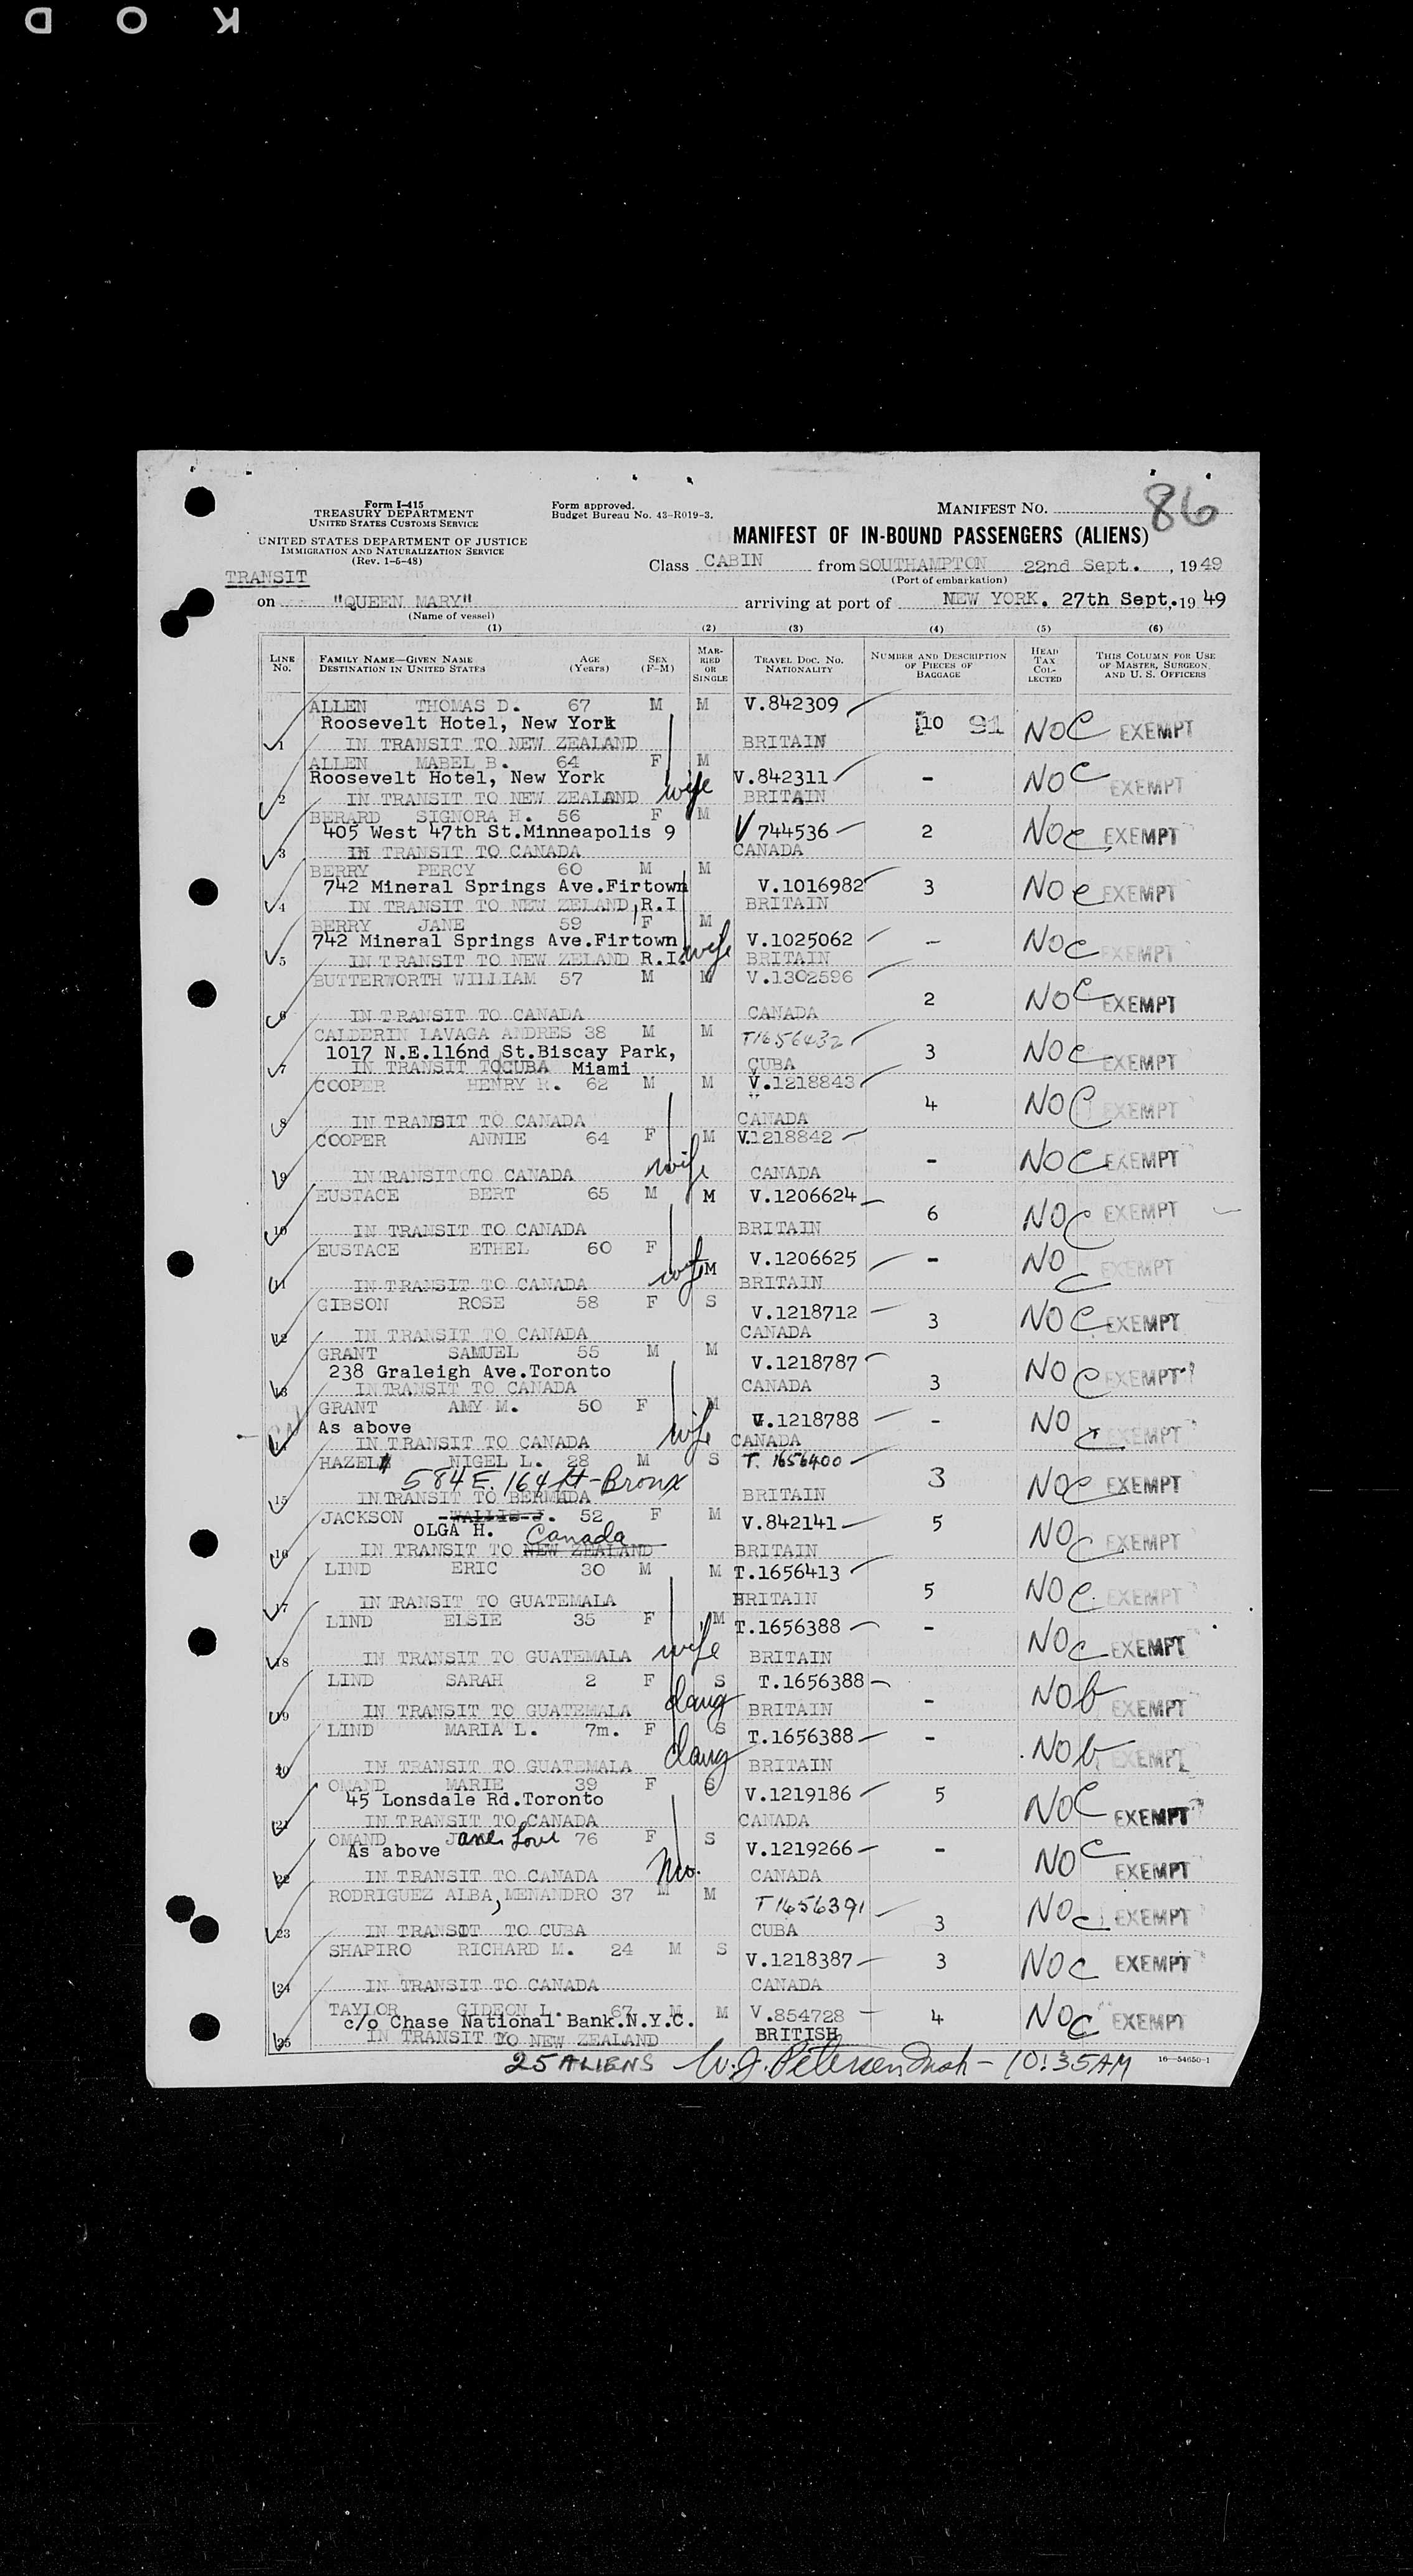 K O D
Form I-415
TREASURY DEPARTMENT
UNITED STATES CUSTOMS SERVICE
Form approved.
Budget Bureau No. 43-R019-3.
MANIFEST NO. 86
UNITED STATES DEPARTMENT OF JUSTICE
IMMIGRATION AND NATURALIZATION SERVICE
(Rev. 1-6-48)
MANIFEST OF IN-BOUND PASSENGERS (ALIENS)
Class CABIN from SOUTHAMPTON 22nd Sept., 1949
(Port of embarkation)
TRANSIT
on "QUEEN MARY" arriving at port of NEW YORK. 27th Sept. 19 49
(Name of vessel)
(1) (2) (3) (4) (5) (6)
LINE No. FAMILY NAME—GIVEN NAME DESTINATION IN UNITED STATES AGE (Years) SEX (F-M) MARRIED OR SINGLE TRAVEL DOC. NO. NATIONALITY NUMBER AND DESCRIPTION OF PIECES OF BAGGAGE HEAD TAX COLLECTED THIS COLUMN FOR USE OF MASTER, SURGEON, AND U. S. OFFICERS
ALLEN THOMAS D. 67 M M V.842309
Roosevelt Hotel, New York 10 91 NO C EXEMPT
1 IN TRANSIT TO NEW ZEALAND BRITAIN
ALLEN MABEL B. 64 F M
Roosevelt Hotel, New York V.842311 - NO C EXEMPT
2 IN TRANSIT TO NEW ZEALAND wife BRITAIN
BERARD SIGNORA H. 56 F M
405 West 47th St.Minneapolis 9 V 744536 2 NO C EXEMPT
3 IN TRANSIT TO CANADA CANADA
BERRY PERCY 60 M M
742 Mineral Springs Ave.Firtown V.1016982 3 NO C EXEMPT
4 IN TRANSIT TO NEW ZELAND, R.I BRITAIN
BERRY JANE 59 F M
742 Mineral Springs Ave.Firtown wife V.1025062 - NO C EXEMPT
5 IN TRANSIT TO NEW ZELAND R.I. BRITAIN
BUTTERWORTH WILLIAM 57 M M V.1302596
2 NO C EXEMPT
6 IN TRANSIT TO CANADA CANADA
CALDERIN LAVAGA ANDRES 38 M M T1656432
1017 N.E.116nd St.Biscay Park, 3 NO C EXEMPT
7 IN TRANSIT TO CUBA Miami CUBA
COOPER HENRY R. 62 M M V.1218843
4 NO C EXEMPT
8 IN TRANSIT TO CANADA CANADA
COOPER ANNIE 64 F M V.1218842
wife - NO C EXEMPT
9 IN TRANSIT TO CANADA CANADA
EUSTACE BERT 65 M M V.1206624
6 NO C EXEMPT
10 IN TRANSIT TO CANADA BRITAIN
EUSTACE ETHEL 60 F
wife M V.1206625 - NO C EXEMPT
11 IN TRANSIT TO CANADA BRITAIN
GIBSON ROSE 58 F S V.1218712
3 NO C EXEMPT
12 IN TRANSIT TO CANADA CANADA
GRANT SAMUEL 55 M M V.1218787
238 Graleigh Ave.Toronto 3 NO C EXEMPT
13 IN TRANSIT TO CANADA CANADA
GRANT AMY M. 50 F M
As above wife V.1218788 - NO C EXEMPT
IN TRANSIT TO CANADA CANADA
HAZELL NIGEL L. 28 M S T. 1656400
584 E. 164 st - Bronx 3 NO C EXEMPT
15 IN TRANSIT TO BERMUDA BRITAIN
JACKSON WALLIS J. 52 F M V.842141 5 NO C EXEMPT
OLGA H. Canada
16 IN TRANSIT TO NEW ZEALAND BRITAIN
LIND ERIC 30 M M T.1656413
5 NO C EXEMPT
17 IN TRANSIT TO GUATEMALA BRITAIN
LIND ELSIE 35 F M T.1656388 -
wife NO C EXEMPT
18 IN TRANSIT TO GUATEMALA BRITAIN
LIND SARAH 2 F S T.1656388
daug - NO b EXEMPT
19 IN TRANSIT TO GUATEMALA BRITAIN
LIND MARIA L. 7m. F S T.1656388 -
daug NO b EXEMPT
20 IN TRANSIT TO GUATEMALA BRITAIN
OMAND MARIE 39 F S V.1219186 5
45 Lonsdale Rd.Toronto NO C EXEMPT
21 IN TRANSIT TO CANADA CANADA
OMAND Jane Love 76 F S V.1219266 -
As above Mo. NO C EXEMPT
22 IN TRANSIT TO CANADA CANADA
RODRIGUEZ ALBA, MENANDRO 37 M M T1656391
3 NO C EXEMPT
23 IN TRANSIT TO CUBA CUBA
SHAPIRO RICHARD M. 24 M S V.1218387 3
NO C EXEMPT
24 IN TRANSIT TO CANADA CANADA
TAYLOR GIDEON L. 67 M M V.854728 4
c/o Chase National Bank.N.Y.C. NO C EXEMPT
25 IN TRANSIT TO NEW ZEALAND BRITISH
25 ALIENS W. J. Petersen Insp - 10:35 AM 16—54650-1